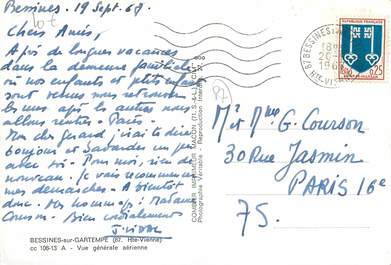 Bessines. 19 Sept. 68.
Chers Amis,
Après de longues vacances
dans la demeure familiale
où nos enfants et petits enfants
sont venus nous retrouver
les uns après les autres nous
allons rentrer Paris.
Mon cher Gérard, j'irai te dire
bonjour et bavarder un peu
avec toi. Pour moi, rien de
nouveau. Je vais recommencer
mes démarches. A bientôt
donc. Mes hommages à Madame
Courson. Bien cordialement
J. Vidal
BESSINES-sur-GARTEMPE (87. Hte-Vienne)
cc 106-13 A - Vue générale aérienne
COMBIER IMPRIMEUR MACON (71. S.-&-L.) "CIM"
Photographie Véritable - Reproduction Interdite
87
87 BESSINES
18H
20
196
Hte-VIENNE
REPUBLIQUE FRANÇAISE
0,25
Mr et Mme G. Courson
30 Rue Jasmin
PARIS 16e
75.